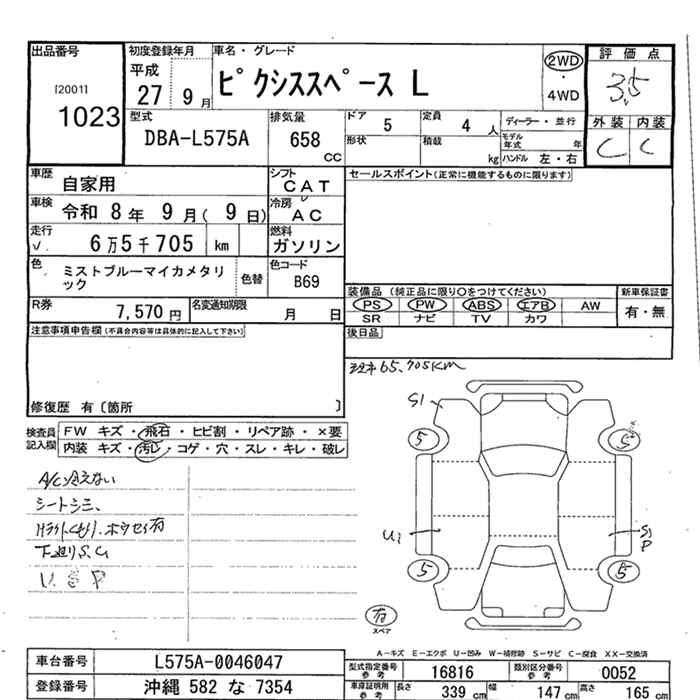 出品番号
[2001]
1023
初度登録年月
平成
27 9 月
車名・グレード
ピクシススペース L
2WD
・
4WD
評価点
3.5
外装 内装
C C
型式
DBA-L575A
排気量
658
CC
ドア
5
定員
4 人
形状
積載
kg
ディーラー・並行
モデル年式 年
ハンドル 左・右
車歴
自家用
シフト
CAT
車検
令和 8 年 9 月( 9 日)
冷房
AC
走行
6 万 5 千 705 km
燃料
ガソリン
色
ミストブルーマイカメタリック
色替
色コード
B69
R券
7,570 円
名変通知期限
月 日
セールスポイント(正常に機能するものに限ります)
装備品 (純正品に限り○をつけてください)
PS PW ABS エアB AW
SR ナビ TV カワ
新車保証書
有・無
後日品
注意事項申告欄(不具合内容等は具体的に記入して下さい)
修復歴 有〔箇所 〕
65,705KM
検査員
記入欄
FW キズ・飛石・ヒビ割・リペア跡・×要
内装 キズ・汚れ・コゲ・穴・スレ・キレ・破レ
A/C冷えない
シートシミ、
下廻りS、U
S1
5
5
U1
S1
P
5
5
有
スペア
A-キズ E-エクボ U-凹み W-補修跡 S-サビ C-腐食 XX-交換済
車台番号
L575A-0046047
登録番号
沖縄 582 な 7354
型式指定番号
参考
16816
類別区分番号
参考
0052
車庫証明用
参考
長さ
339 cm
幅
147 cm
高さ
165 cm